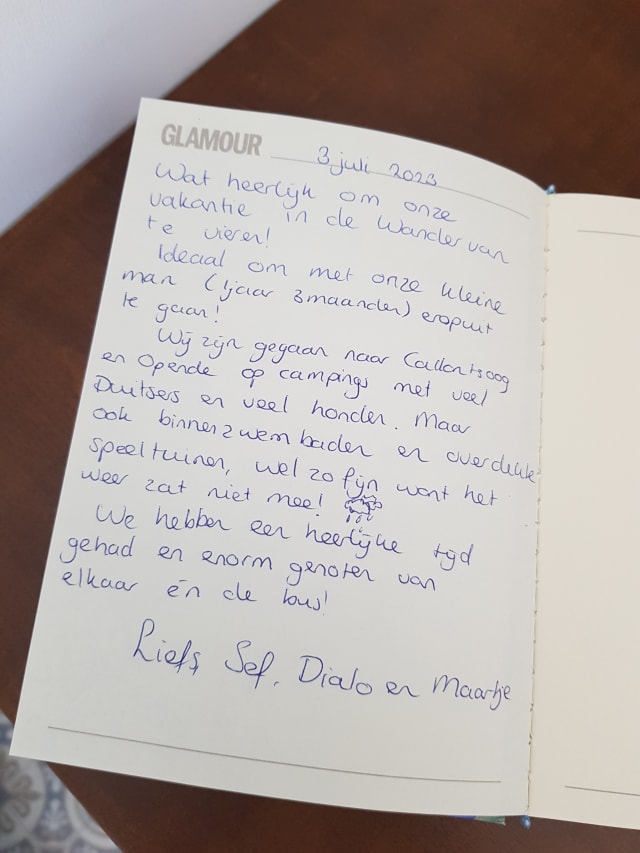 GLAMOUR 3 juli 2023
Wat heerlijk om onze
vakantie in de Wander van
te vieren!
Ideaal om met onze kleine
man (1jaar 3maanden) eropuit
te gaan!
Wij zijn gegaan naar Callantsoog
en Opende op campings met veel
Duitsers en veel honden. Maar
ook binnenzwembaden en overdekte
speeltuinen, wel zo fijn want het
weer zat niet mee!
We hebben een heerlijke tijd
gehad en enorm genoten van
elkaar én de bus!
Liefs, Sef, Dialo en Maartje